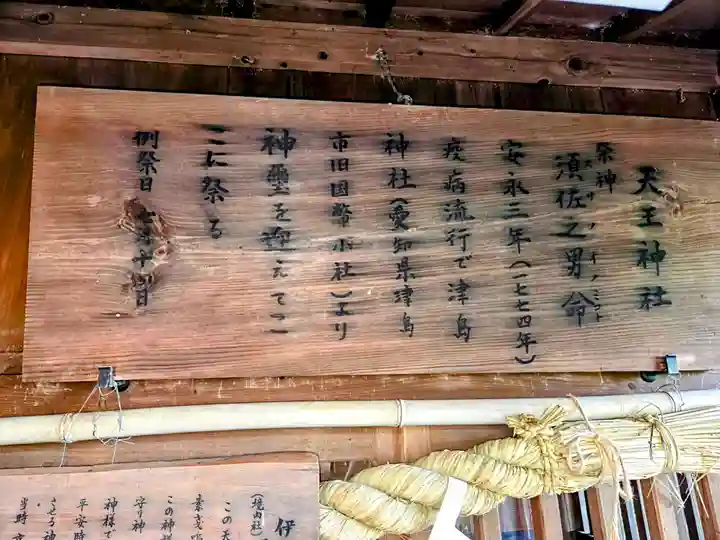 天王神社
祭神 須佐之男命
スサノオノミコト
安永三年(一七七四年)
疫病流行で津島
神社(愛知県津島
市旧国幣小社)より
神璽を迎えてこ
こに祭る
例祭日 七月十四日
伊
(境内社)
この天
素戔嗚
この神様
守り神
神様で
平安時
させる神
当時